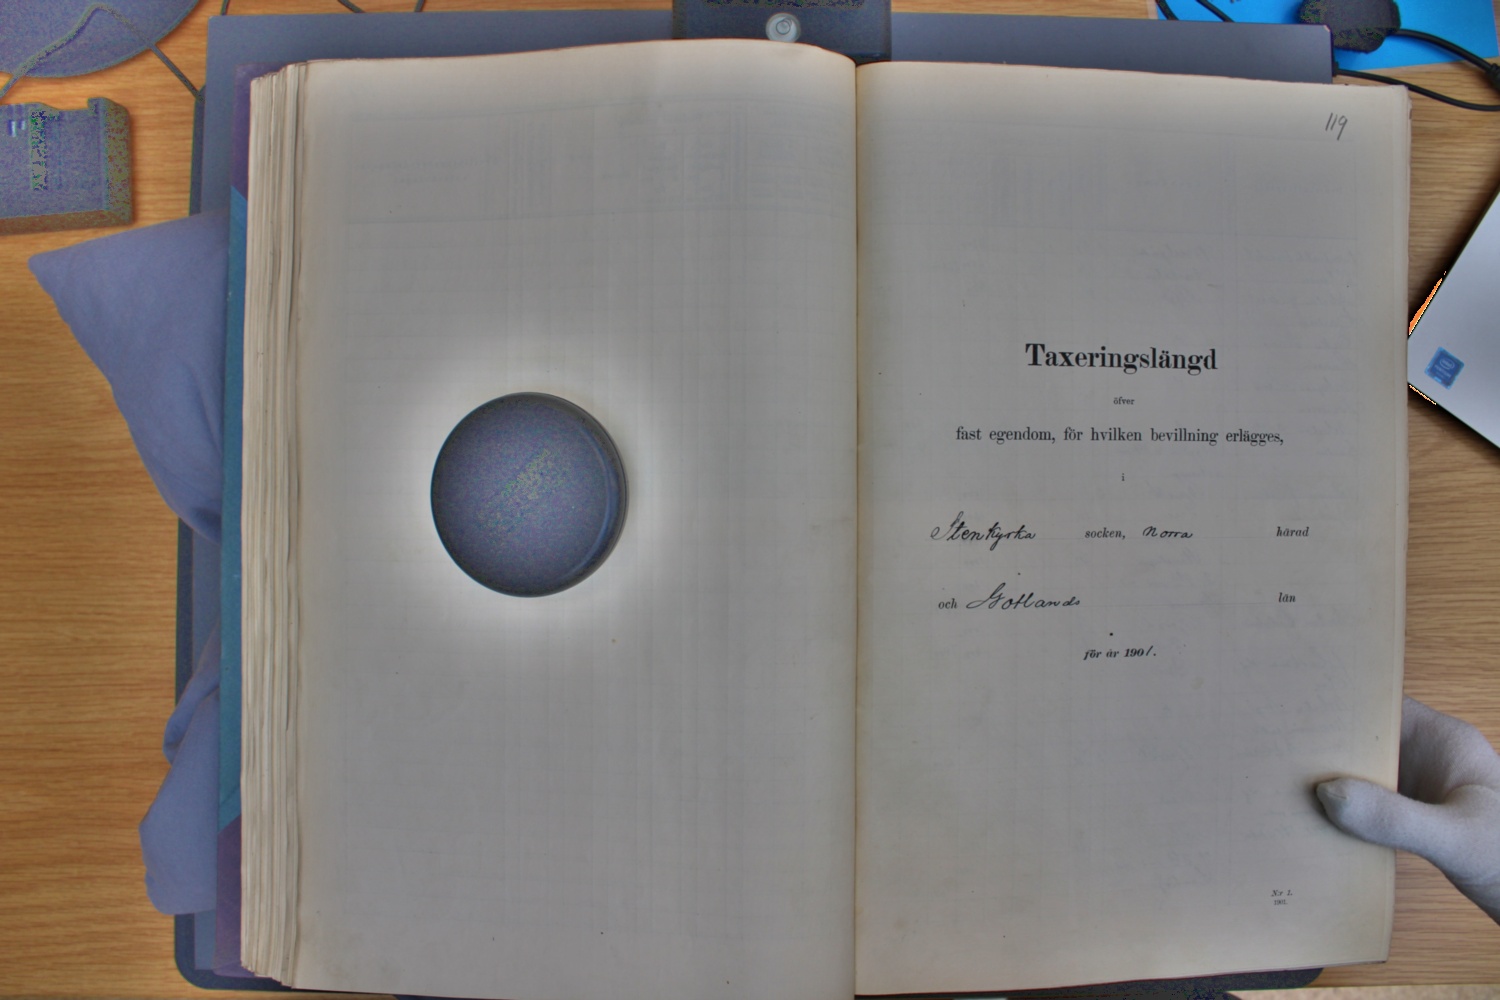 119
Taxeringslängd
öfver
fast egendom, för hvilken bevillning erlägges,
i
Stenkyrka socken, Norra härad
och Gotlands län
för år 1901.
N:r 1.
1901.